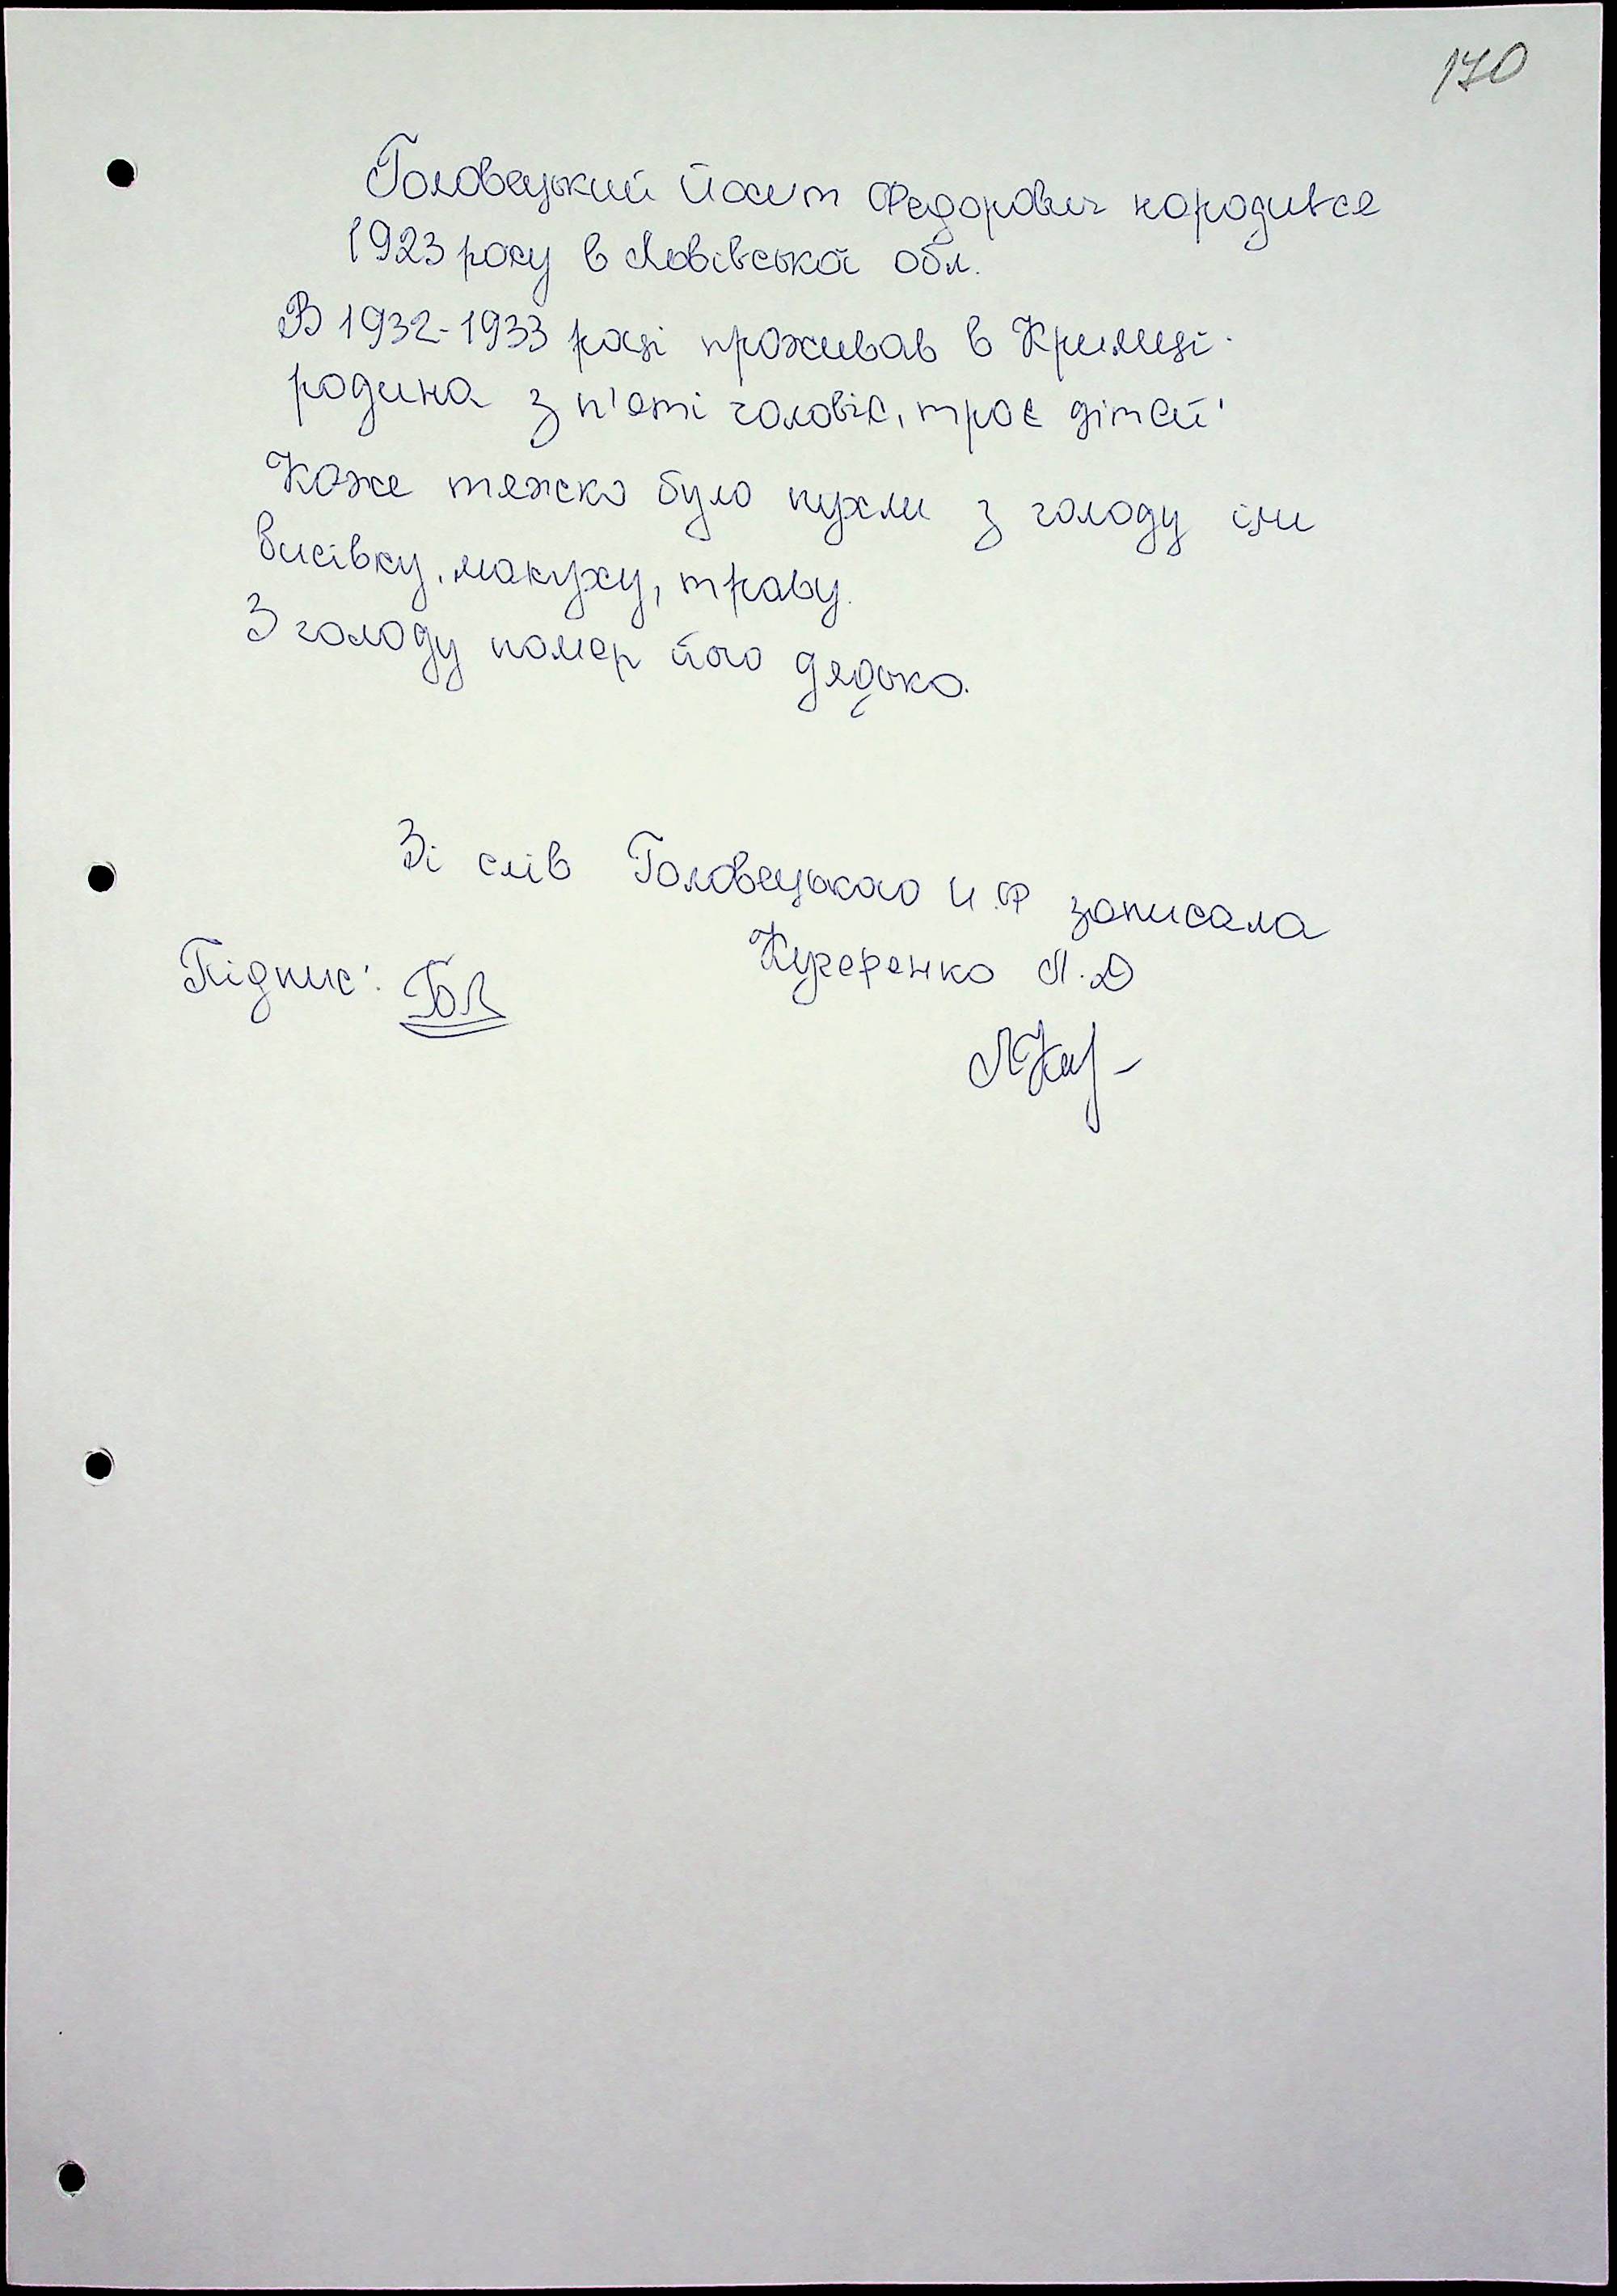 170
Головецький Йосип Федорович народився
1923 року в Львівської обл.
В 1932-1933 році проживав в Кримці.
родина з п'яті головік, троє дітей.
Каже тяжко було пухли з голоду їли
висівку, макуху, траву.
З голоду помер його дядько.
Зі слів Головецького И.Ф записала
Кучеренко Л.Д
Підпис: Гол